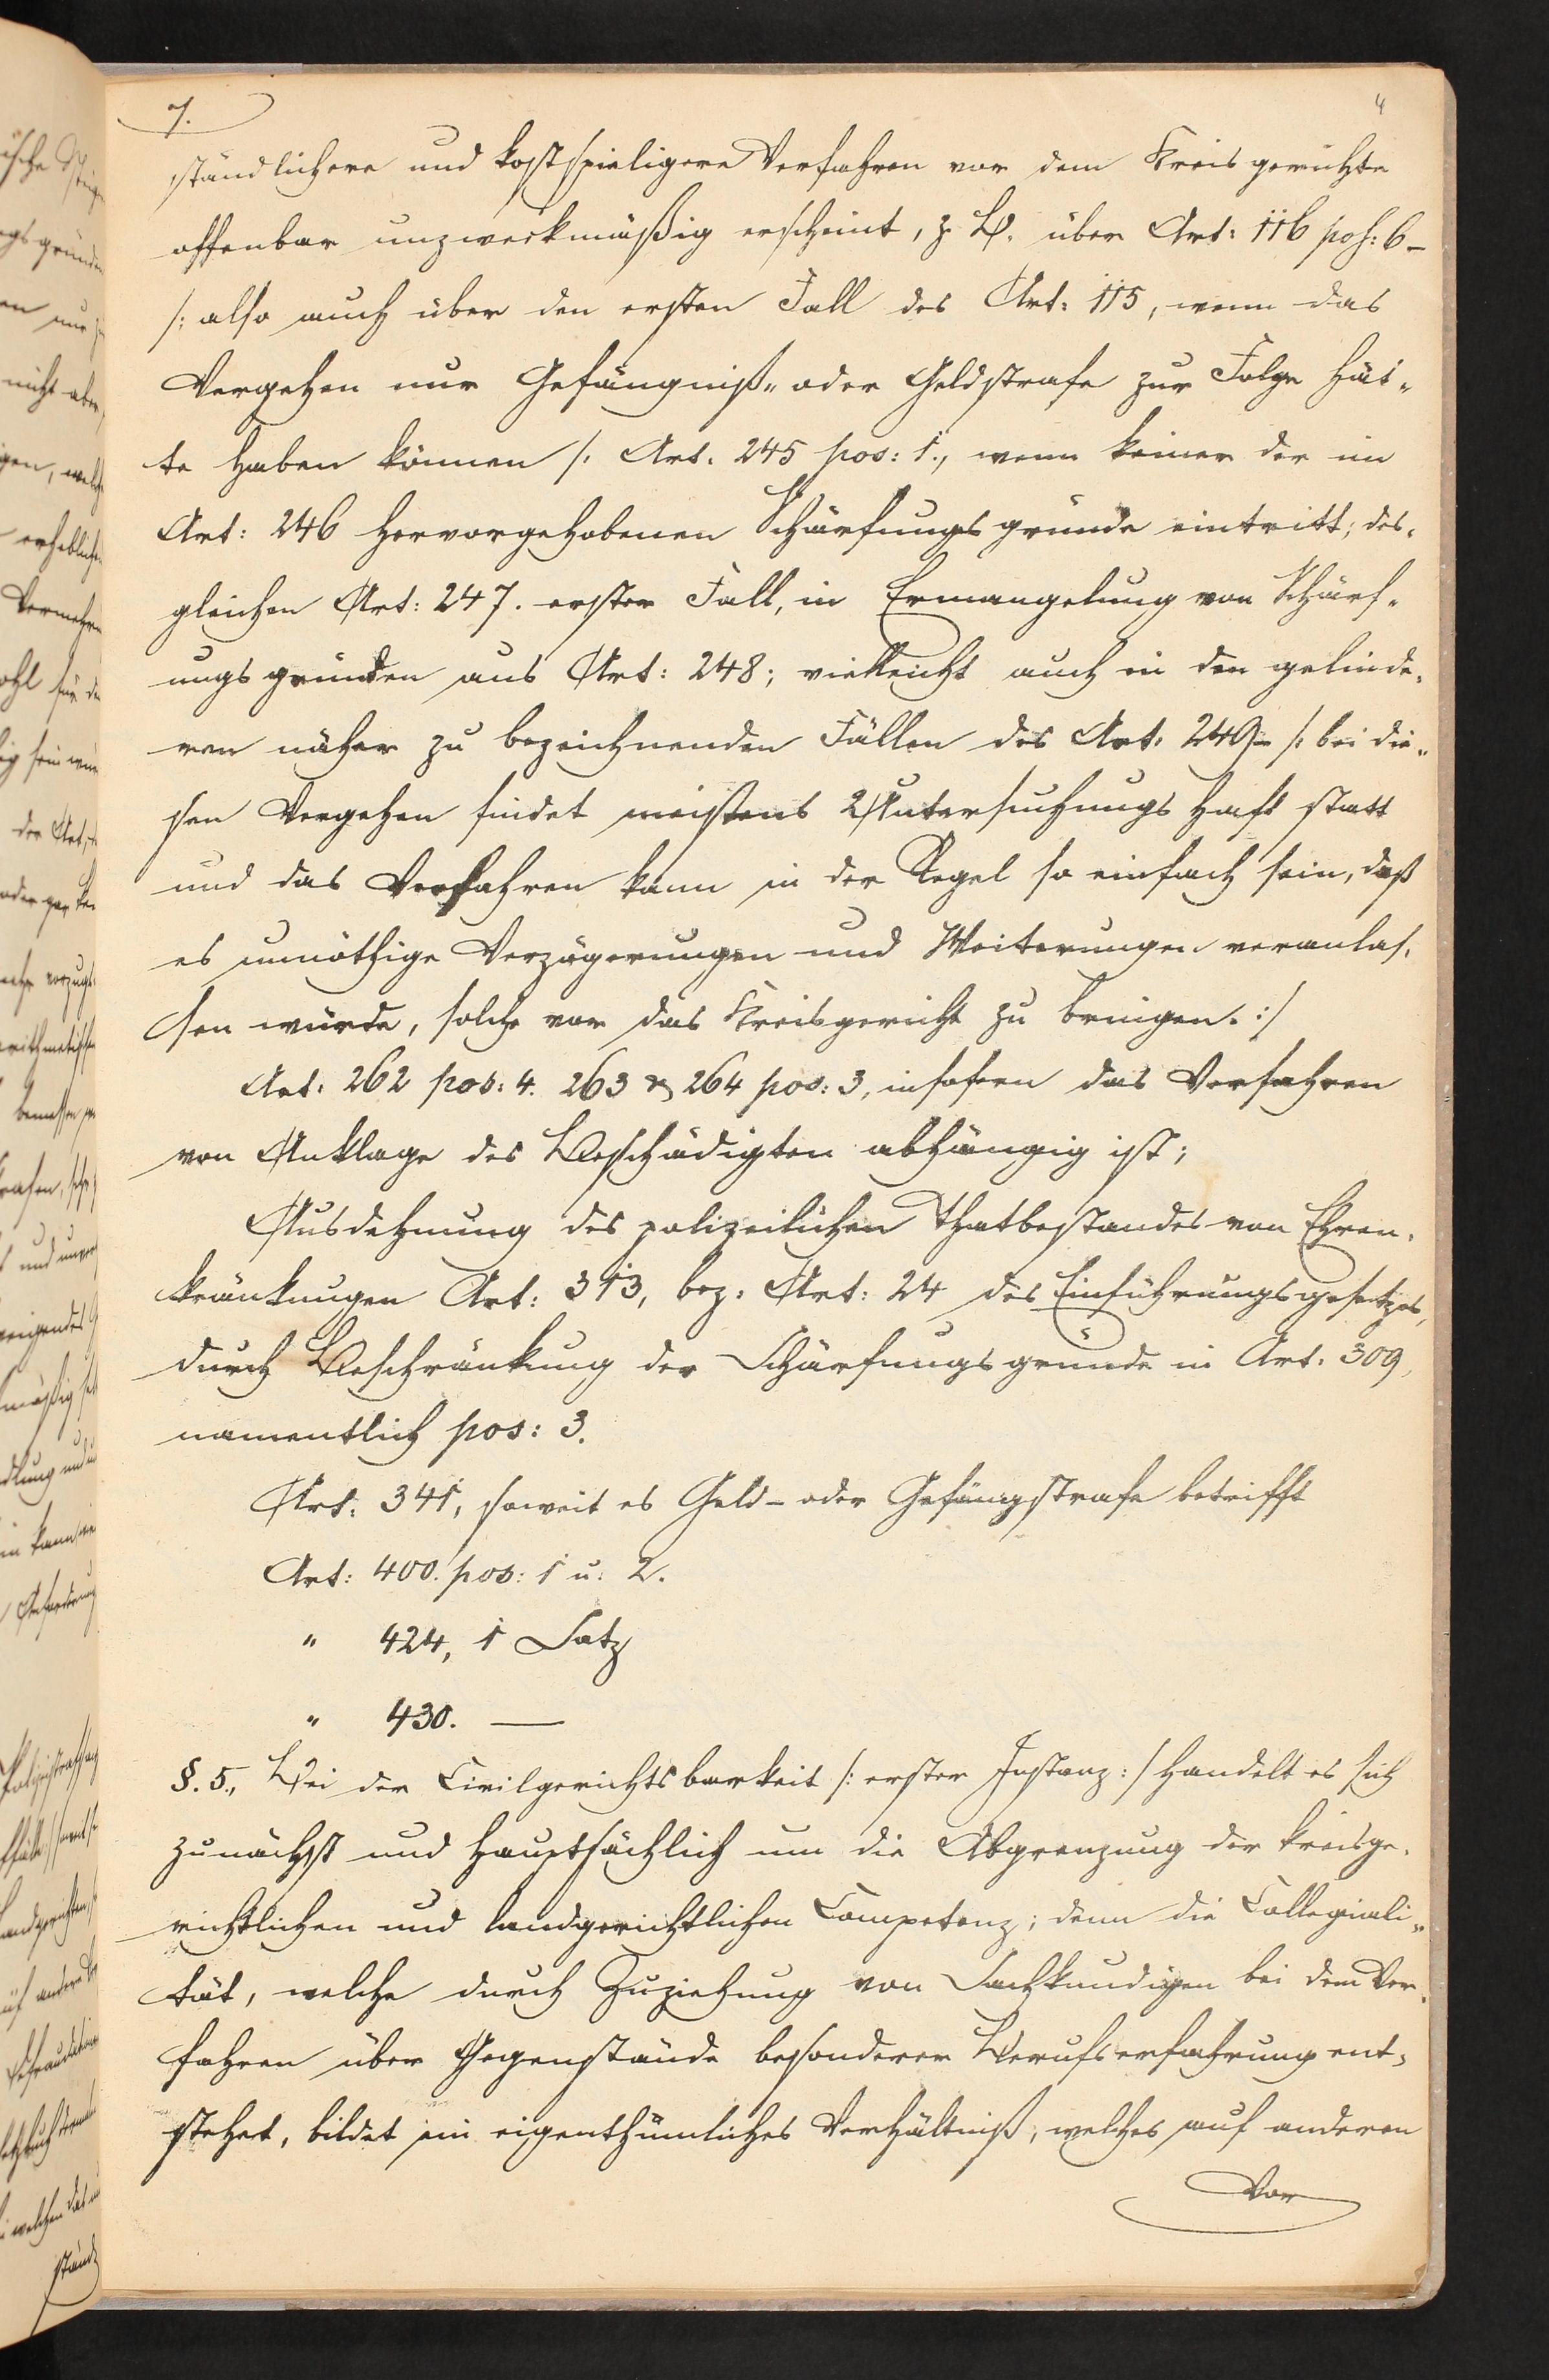 7.
4
ständlichere und kostspieligere Verfahren vor dem Kreisgerichte
offenbar unzweckmäßig erscheint, z. B. über Art: 116 pos: 6 –
/: also auch über den ersten Fall des Art: 115, wenn das
Vergehen nur Gefängniß- oder Geldstrafe zur Folge hät-
te haben können /: Art. 245 pos: 1., wenn keiner der im
Art: 246 hervorgehobenen Schärfungsgründe eintritt; des-
gleichen Art: 247. erster Fall, in Ermangelung von Schärf-
ungsgründen aus Art: 248; vielleicht auch in den gelinde-
ren näher zu bezeichnenden Fällen des Art. 249 – /: bei die-
sen Vergehen findet meistens Untersuchungshaft statt
und das Verfahren kann in der Regel so einfach sein, daß
es unnöthige Verzögerungen und Weiterungen veranlas-
sen würde, solche vor das Kreisgericht zu bringen. :/
Art. 262 pos: 4. 263 & 264 pos: 3, insofern das Verfahren
von Anklage des Beschädigten abhängig ist;
Ausdehnung des polizeilichen Thatbestandes von Ehren-
kränkungen Art: 313, bez: Art: 24 des Einführungsgesetzes,
durch Beschränkung der Schärfungsgründe in Art. 309,
namentlich pos: 3.
Art. 341, soweit es Geld- oder Gefängstrafe betrifft
Art: 400. pos: 1 u. 2.
" 424, 1 Satz
" 430. —
§. 5., Bei der Civilgerichtsbarkeit /: erster Instanz :/ handelt es sich
zunächst und hauptsächlich um die Abgrenzung der kreisge-
richtlichen und landgerichtlichen Competenz; denn die Collegiali-
tät, welche durch Zuziehung von Sachkundigen bei dem Ver-
fahren über Gegenstände besonderer Berufserfahrung ent-
stehet, bildet ein eigenthümliches Verhältniß, welches auf anderen
Vor